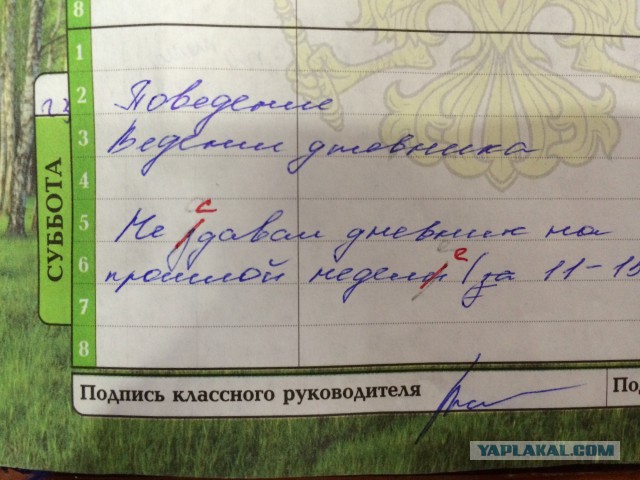 8
1
2 Поведение
3 Ведение дневника
4
СУББОТА
5 Не здавал дневник на
с
6 прошлой недели (за 11-15
е
7
8
Подпись классного руководителя
По
YAPLAKAL.COM